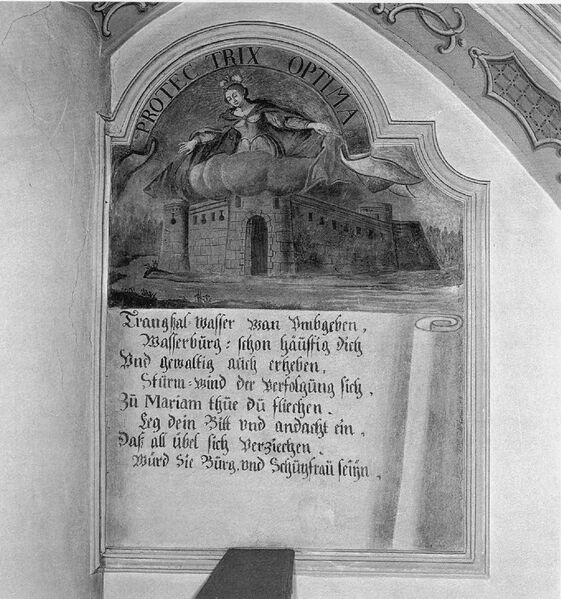 PROTECTRIX OPTIMA
Trangsal-Wasser wan Vmbgeben,
Wasserbürg: schon häuffig Dich
Vnd gewaltig aüch erheben,
Stürm-wind der Verfolgüng sich,
Zü Mariam thüe dü fliechen.
Leg dein Bitt vnd andacht ein,
Daß all übel sich Verziechen.
Würd Sie Bürg, vnd Schützfraü seÿn,